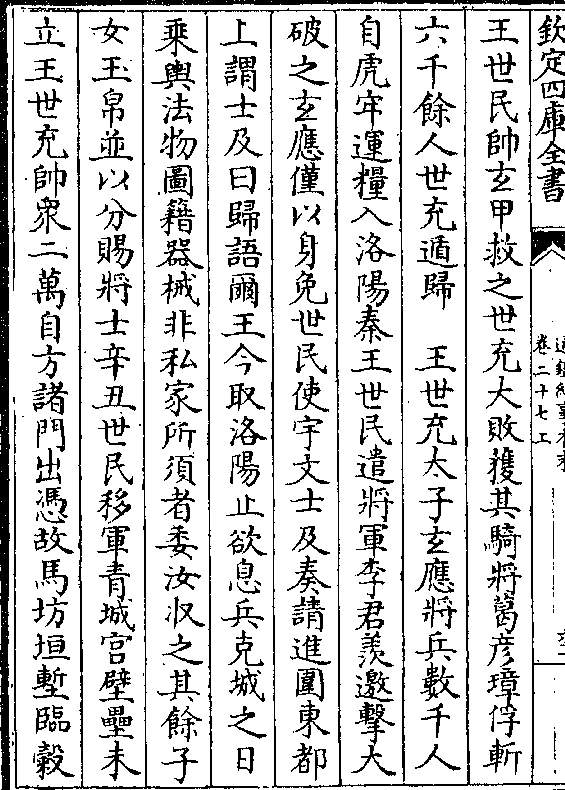 欽定四庫全書
卷二十七上
王世民帥玄甲救之世充大敗獲其騎將葛彦璋俘斬
六千餘人世充遁歸　王世充太子玄應將兵數千人
自虎牢運糧入洛陽秦王世民遣將軍李君羡邀擊大
破之玄應僅以身免世民使宇文士及奏請進圍東都
上謂士及曰歸語爾王今取洛陽止欲息兵克城之日
乘輿法物圖籍器械非私家所須者委汝收之其餘子
女玉帛並以分賜將士辛丑世民移軍青城宮壁壘未
立王世充帥衆二萬自方諸門出憑故馬坊垣塹臨穀